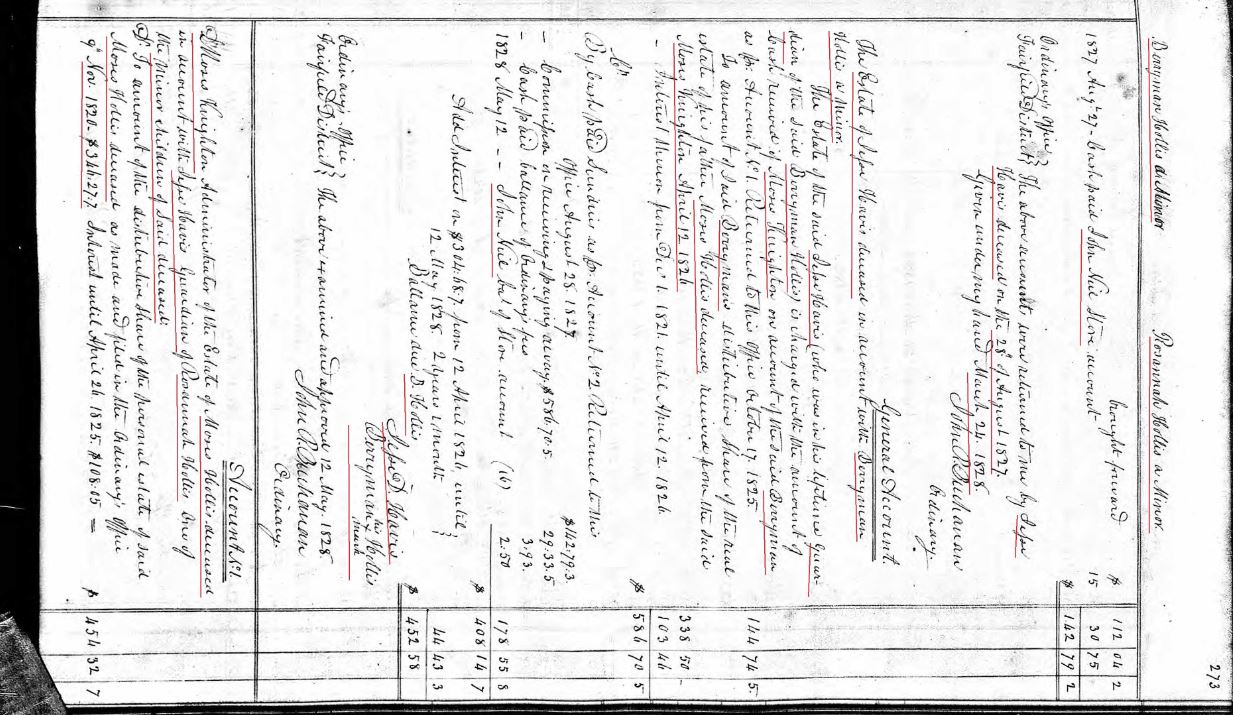 273
Berryman Hollis a Minor Rosannah Hollis a Minor
brought forward $ 112 04 2
1827 Aug't 27 - Cash paid John Neil Store account 15 30 75
$ 142 79 2
Ordinary's Office }
Fairfield District } The above accounts were returned to me by Jesse
Havis deceased on the 28th of August 1827.
Given under my hand March 24 1828
John R. Buchanan
Ordinary.
General Account.
The Estate of Jesse Havis deceased in account with Berryman
Hollis a minor.
The Estate of the said Jesse Havis (who was in his lifetime Guar-
dian of the said Berryman Hollis) is charged with the amount of
Cash received of Moses Knighton on account of the said Berryman
as pr. Account No. 1. Returned to this Office October 17. 1825. 144 74 5
To amount of said Berrymans distributive share of the real
estate of his father Moses Hollis deceased, received from the said
Moses Knighton April 12 1826 338 50 -
- Interest thereon from Decr 1. 1821. until April 12. 1826 103 46
$ 586 70 5
Cr.
By Cash paid Sundries as pr. Account No 2 Returned to this
Office August 28. 1827. $142.79.3.
- Commission on receiving & paying away $586.70.5 29.33.5
- Cash paid ballance of Ordinary's fees 3.93.
1828 May 12 - - John Neil bal of Store account (16) 2.50 178 55 8
$ 408 14 7
Add Interest on $304.68.7 from 12 April 1826 until }
12 May 1828 2 years 1 month } 44 43 3
Ballance due B. Hollis $ 452 58
Jesse D. Havis
Berryman his Hollis
mark
Ordinary's Office }
Fairfield District } The above examined and approved 12 May. 1828
John R. Buchanan
Ordinary.
Account No 1.
Dr Moses Knighton Administrator of the Estate of Moses Hollis deceased
in account with Jesse Havis Guardian of Rosannah Hollis One of
the Minor children of said deceased.
Dr. To amount of the distributive share of the personal estate of said
Moses Hollis deceased as made and filed in the Ordinary's Office
9th Nov. 1820. $346.27.7 Interest until April 26 1825. $108.05 = $ 454 32 7